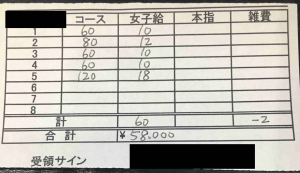 コース 女子給 本指 雑費
1 60 10
2 80 12
3 60 10
4 60 10
5 120 18
6
7
8
計 60 -2
合計 ¥58.000
受領サイン